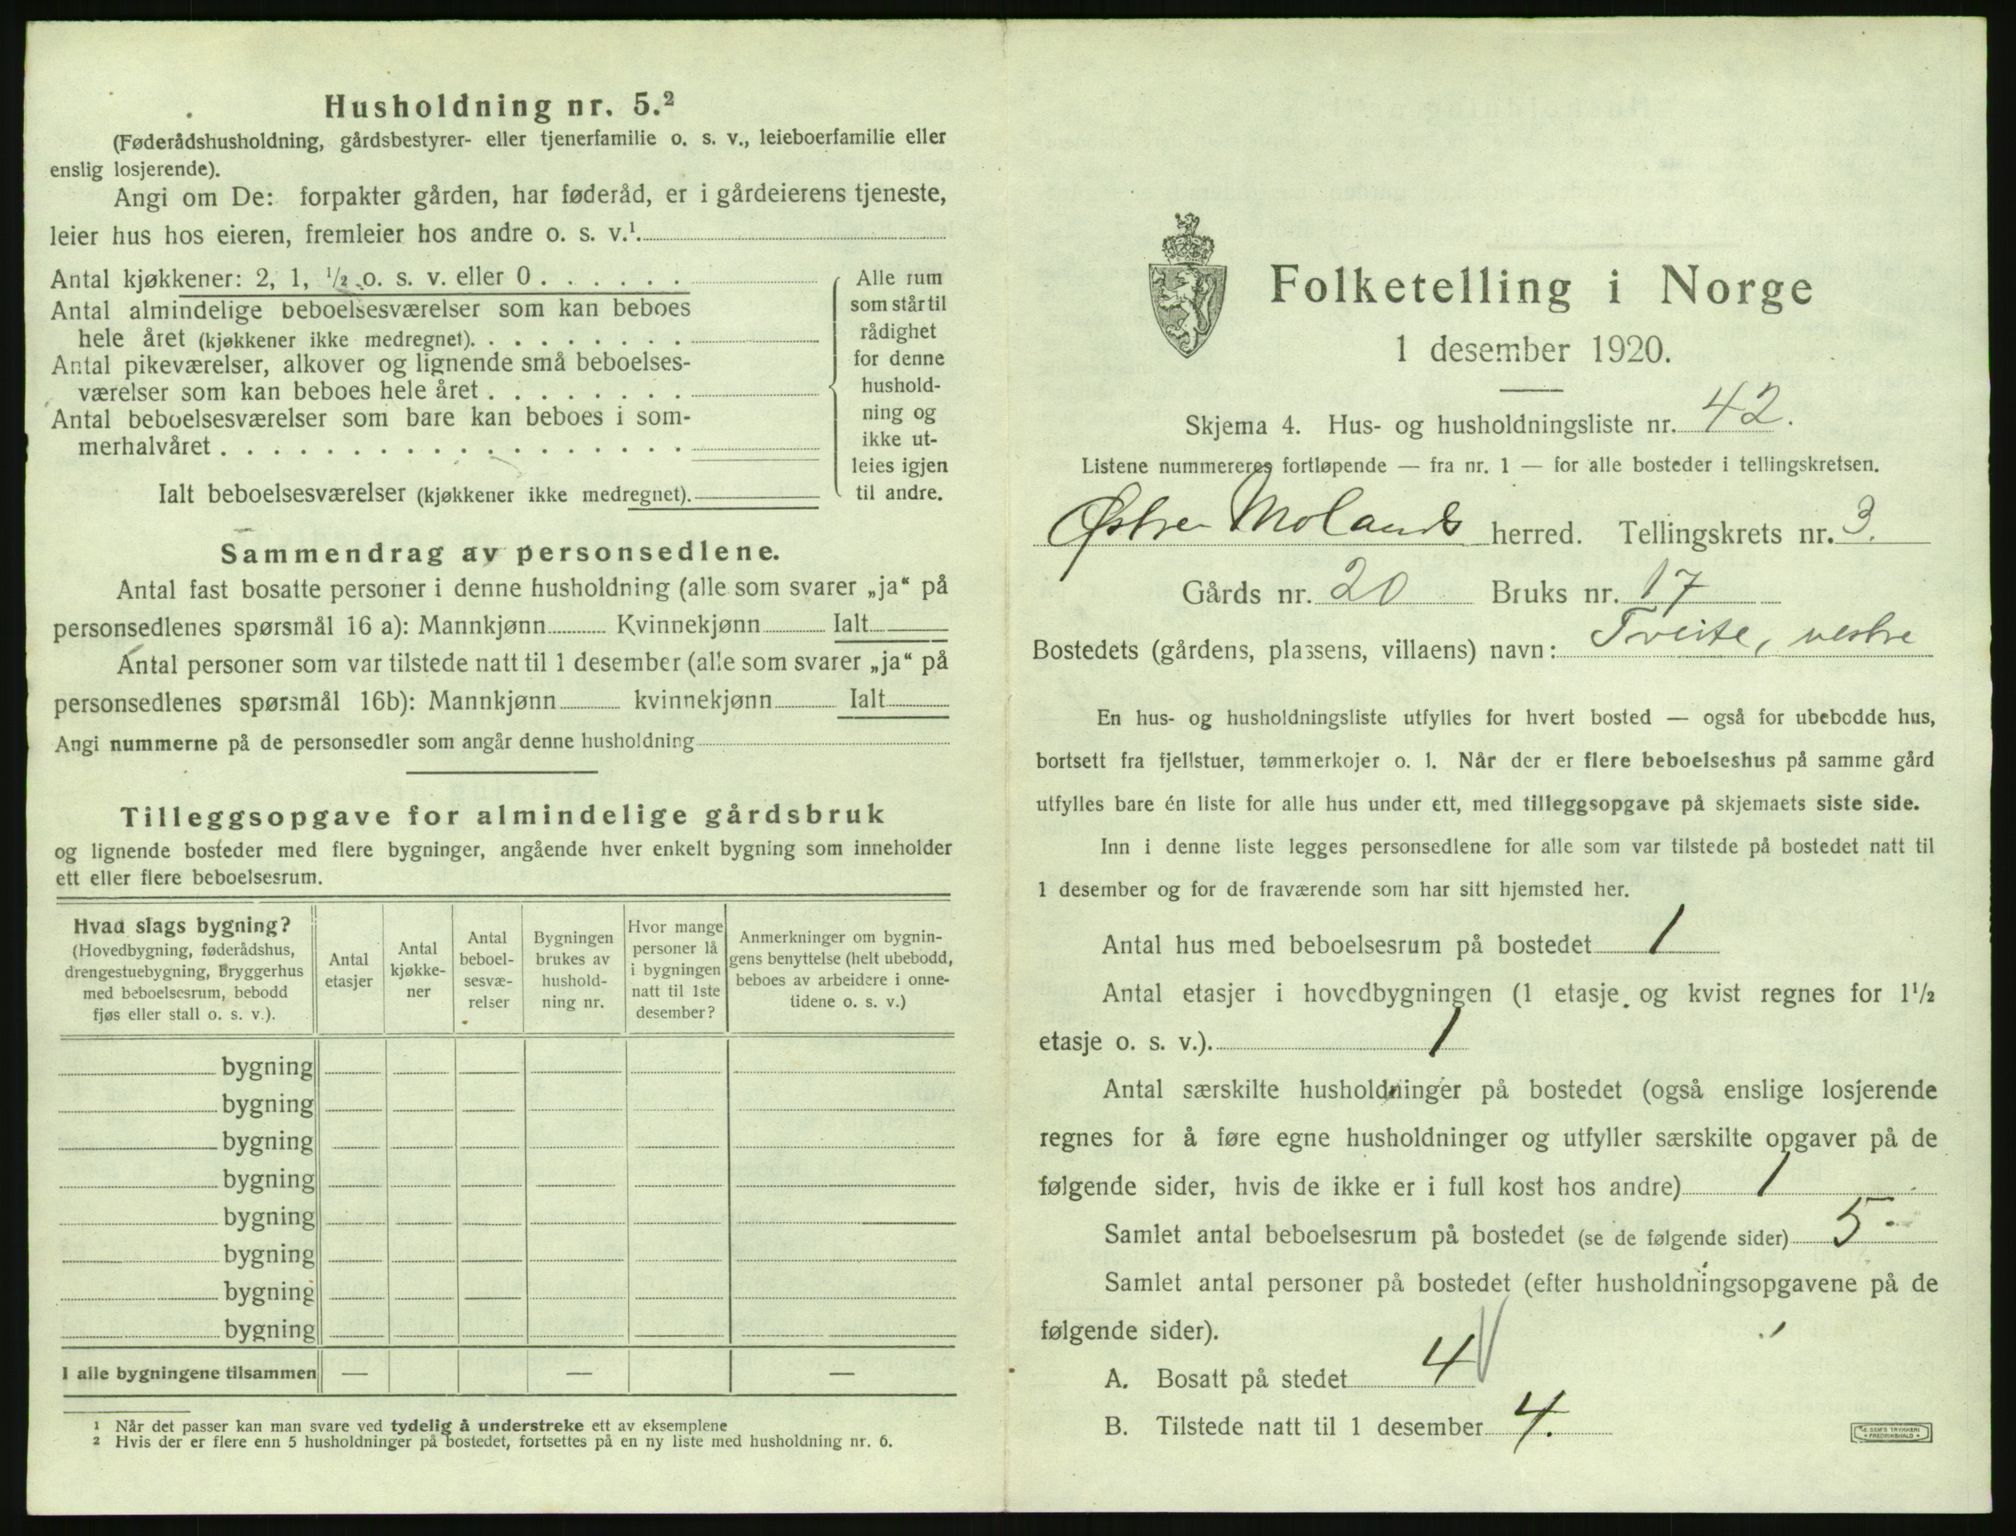 Husholdning nr. 5.²
(Føderådshusholdning, gårdsbestyrer- eller tjenerfamilie o. s. v., leieboerfamilie eller
enslig losjerende).
Angi om De: forpakter gården, har føderåd, er i gårdeierens tjeneste,
leier hus hos eieren, fremleier hos andre o. s. v.¹.
Antal kjøkkener: 2, 1, ½ o. s. v. eller 0 . . . . . .
Antal almindelige beboelsesværelser som kan beboes
hele året (kjøkkener ikke medregnet). . . . . . . . .
Antal pikeværelser, alkover og lignende små beboelses-
værelser som kan beboes hele året . . . . . . . .
Antal beboelsesværelser som bare kan beboes i som-
merhalvåret . . . . . . . . . . . . . . . . . .
Ialt beboelsesværelser (kjøkkener ikke medregnet).
Alle rum
som står til
rådighet
for denne
hushold-
ning og
ikke ut-
leies igjen
til andre.
Sammendrag av personsedlene.
Antal fast bosatte personer i denne husholdning (alle som svarer „ja“ på
personsedlenes spørsmål 16 a): Mannkjønn Kvinnekjønn Ialt
Antal personer som var tilstede natt til 1 desember (alle som svarer „ja“ på
personsedlenes spørsmål 16b): Mannkjønn kvinnekjønn Ialt
Angi nummerne på de personsedler som angår denne husholdning
Tilleggsopgave for almindelige gårdsbruk
og lignende bosteder med flere bygninger, angående hver enkelt bygning som inneholder
ett eller flere beboelsesrum.
Hvad slags bygning?
(Hovedbygning, føderådshus,
drengestuebygning, Bryggerhus
med beboelsesrum, bebodd
fjøs eller stall o. s. v.).
Antal
etasjer
Antal
kjøkke-
ner
Antal
beboel-
sesvæ-
relser
Bygningen
brukes av
hushold-
ning nr.
Hvor mange
personer lå
i bygningen
natt til 1ste
desember?
Anmerkninger om bygnin-
gens benyttelse (helt ubebodd,
beboes av arbeidere i onne-
tidene o. s. v.)
bygning
bygning
bygning
bygning
bygning
bygning
bygning
bygning
I alle bygningene tilsammen — — —
¹ Når det passer kan man svare ved tydelig å understreke ett av eksemplene
² Hvis der er flere enn 5 husholdninger på bostedet, fortsettes på en ny liste med husholdning nr. 6.
Folketelling i Norge
1 desember 1920.
Skjema 4. Hus- og husholdningsliste nr. 42.
Listene nummereres fortløpende — fra nr. 1 — for alle bosteder i tellingskretsen.
Østre Molands herred. Tellingskrets nr. 3.
Gårds nr. 20 Bruks nr. 17
Bostedets (gårdens, plassens, villaens) navn: Tveite, vestre
En hus- og husholdningsliste utfylles for hvert bosted — også for ubebodde hus,
bortsett fra fjellstuer, tømmerkojer o. l. Når der er flere beboelseshus på samme gård
utfylles bare én liste for alle hus under ett, med tilleggsopgave på skjemaets siste side.
Inn i denne liste legges personsedlene for alle som var tilstede på bostedet natt til
1 desember og for de fraværende som har sitt hjemsted her.
Antal hus med beboelsesrum på bostedet 1
Antal etasjer i hovedbygningen (1 etasje og kvist regnes for 1½
etasje o. s. v.). 1
Antal særskilte husholdninger på bostedet (også enslige losjerende
regnes for å føre egne husholdninger og utfyller særskilte opgaver på de
følgende sider, hvis de ikke er i full kost hos andre) 1
Samlet antal beboelsesrum på bostedet (se de følgende sider) 5
Samlet antal personer på bostedet (efter husholdningsopgavene på de
følgende sider).
A. Bosatt på stedet 4
B. Tilstede natt til 1 desember 4.